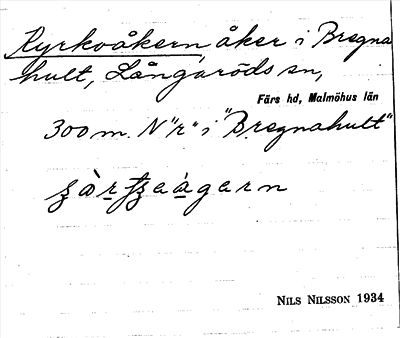 Kyrkoåkern, åker i Bregna
hult, Långaröds sn,
Färs hd, Malmöhus län
300 m. N "r" i "Bregnahult"
NILS NILSSON 1934